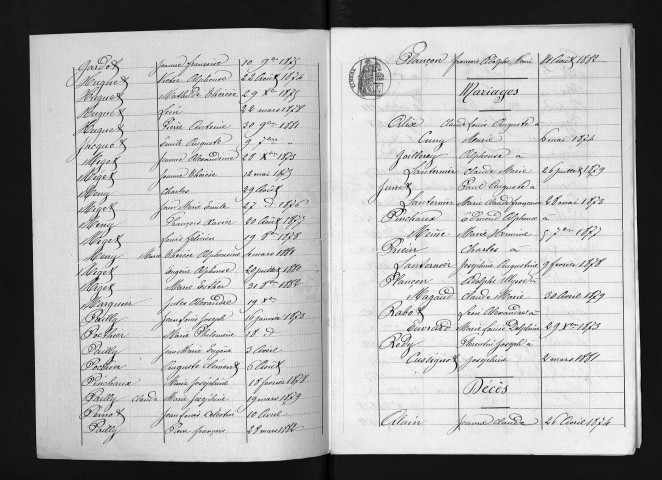 Gardot Jeanne Françoise 10 9bre 1875
Huguet Victor Alphonse 22 Août 1874
Huguet Mathilde Thérèse 29 Xbre 1875
Huguet Léon 22 mars 1878
Huguet Pierre Antoine 30 9bre 1881
Jacquet Emile Auguste 9 7bre "
Miget Jeanne Alexandrine 28 Xbre 1873
Miget Jeanne Thérèse 12 mai 1875
Meny Charles 29 Août
Miget Jean Marie Emile 27 d 1876
Meny François Xavier 20 Août 1877
Miget Louis Félicien 19 8bre 1878
Meny Marie Thérèse Alphonsine 6 mars 1880
Miget Eugène Alphonse 22 juillet 1880
Miget Marie Esther 31 8bre 1882
Marquier Jules Alexandre 19 Xbre
Pailly Jean Louis Joseph 16 janvier 1873
Pochier Marie Philomène 18 d
Pailly Jean Marie Eugène 3 Avril
Pochier Auguste Clément 6 Août
Pinchaux Marie Joséphine 18 février 1878
Pailly Claude Marie Joséphine 19 mars 1879
Perrot Jean Louis Célestin 10 Avril
Pailly Pierre François 28 mars 1882
Plançon François Adolphe Henri 11 Août 1882
Mariages
Alix Claude Louis Auguste à
Cuny Marie 6 mai 1874
Alphonse à
Lanternier Claude Marie 26 juillet 1879
Junet Paul Auguste à
Lanternier Marie Claude Françoise 28 mai 1873
Pinchaux Edmond Alphonse à
Marie Hermine 5 7bre 1877
Charles à
Lanternier Joséphine Augustine 9 février 1878
Plançon Adolphe Ulysse à
Magaud Claude Marie 30 Avril 1879
Rabot Léon Alexandre à
Marie Louise Delphine 29 Xbre 1873
Rody Joseph à
Cussignot Joséphine 2 mars 1881
Décès
Alain Jeanne Claude 26 Avril 1874